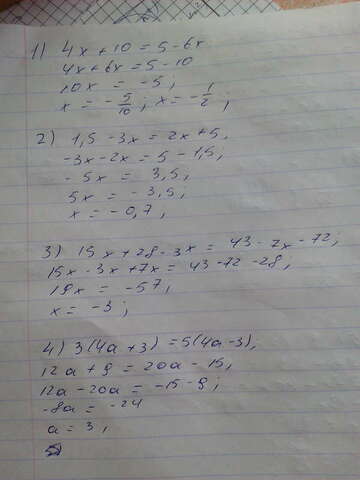 1) 4x + 10 = 5 - 6x
4x + 6x = 5 - 10
10x = -5;
x = - 5/10; x = - 1/2;
2) 1,5 - 3x = 2x + 5,
-3x - 2x = 5 - 1,5;
- 5x = 3,5;
5x = - 3,5;
x = - 0,7;
3) 15x + 28 - 3x = 43 - 7x - 72;
15x - 3x + 7x = 43 - 72 - 28;
19x = -57;
x = -3;
4) 3(4a + 3) = 5(4a - 3),
12a + 9 = 20a - 15,
12a - 20a = -15 - 9;
-8a = -24
a = 3,